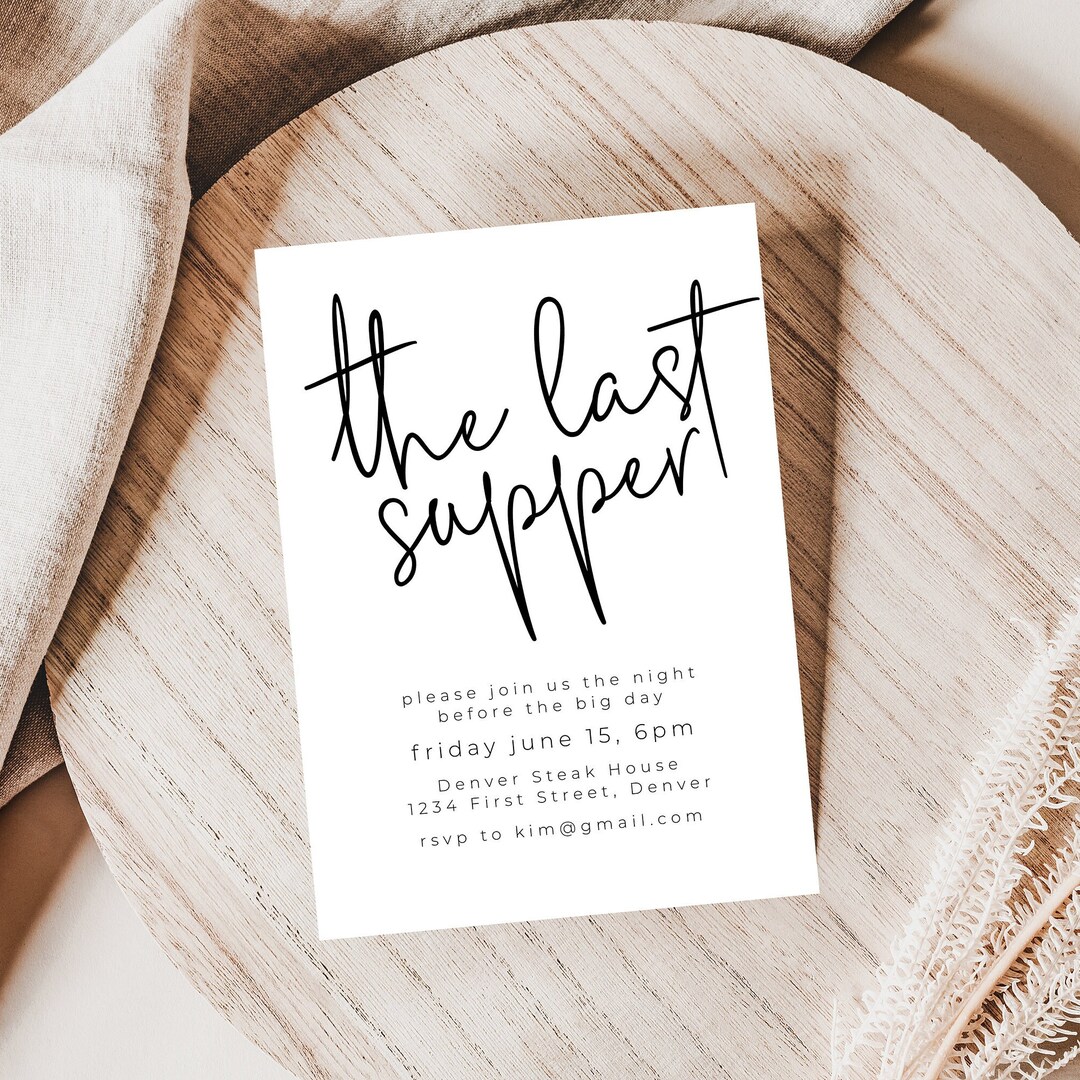 the last
supper
please join us the night
before the big day
friday june 15, 6pm
Denver Steak House
1234 First Street, Denver
rsvp to kim@gmail.com